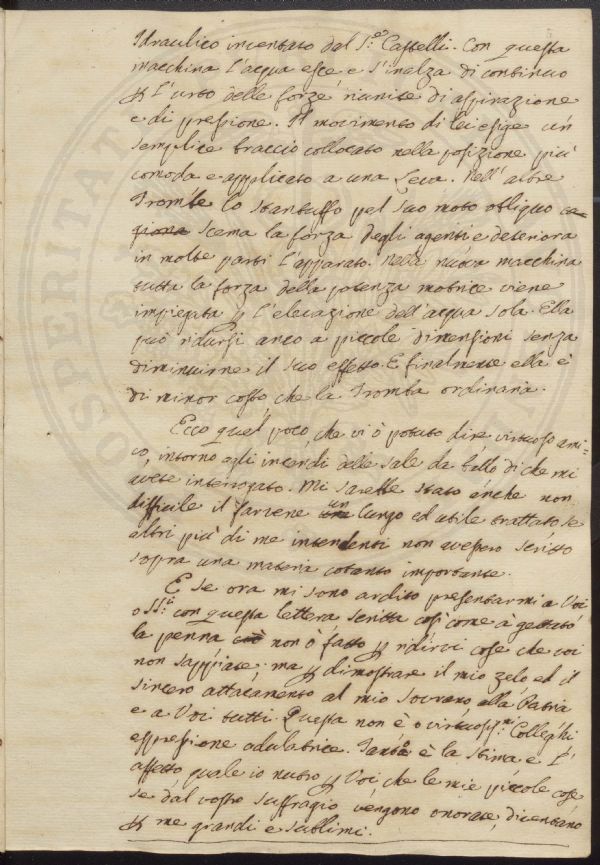 Idraulico inventato dal S.ʳ Castelli. Con questa
macchina l'acqua esce e s'inalza di continuo
ꝑ l'urto delle forze riunite di aspirazione
e di pressione. Il movimento di lei esige un
semplice braccio collocato nella posizione più
comoda e applicato a una Leva. Nell'altre
Trombe lo stantuffo pel suo moto obliquo ca-
giona scema la forza degli agenti e deteriora
in molte parti l'apparato. Nella nuova macchina
tutta la forza della potenza motrice viene
impiegata ꝑ l'elevazione dell'acqua sola. Ella
può ridursi anco a piccole dimensioni senza
diminuirne il suo effetto. E finalmente ella è
di minor costo che la Tromba ordinaria.
Ecco quel poco, che vi ò potuto dire virtuoso ami=
co, intorno agli incendi delle sale da ballo di che mi
avete interrogato. Mi sarebbe stato anche non
difficile il farvene un lungo ed utile trattato se
altri più di me intendenti non avessero scritto
sopra una materia cotanto importante.
E se ora mi sono ardito presentarmi a Voi
o SS.ⁱ con questa lettera scritta così come à gettato
la penna ciò non ò fatto ꝑ ridirvi cose che voi
non sappiate: ma ꝑ dimostrare il mio zelo ed il
sincero attacamento al mio sovrano, alla Patria
e a Voi tutti. Questa non è o virtuosiss.ᵐⁱ Colleghi
espressione adulatrice. Tanta è la stima e l'
affetto quale io nutro ꝑ Voi che le mie piccole cose
se dal vostro suffragio vengono onorate, diventano
ꝑ me grandi e sublimi.
OSPERITATI